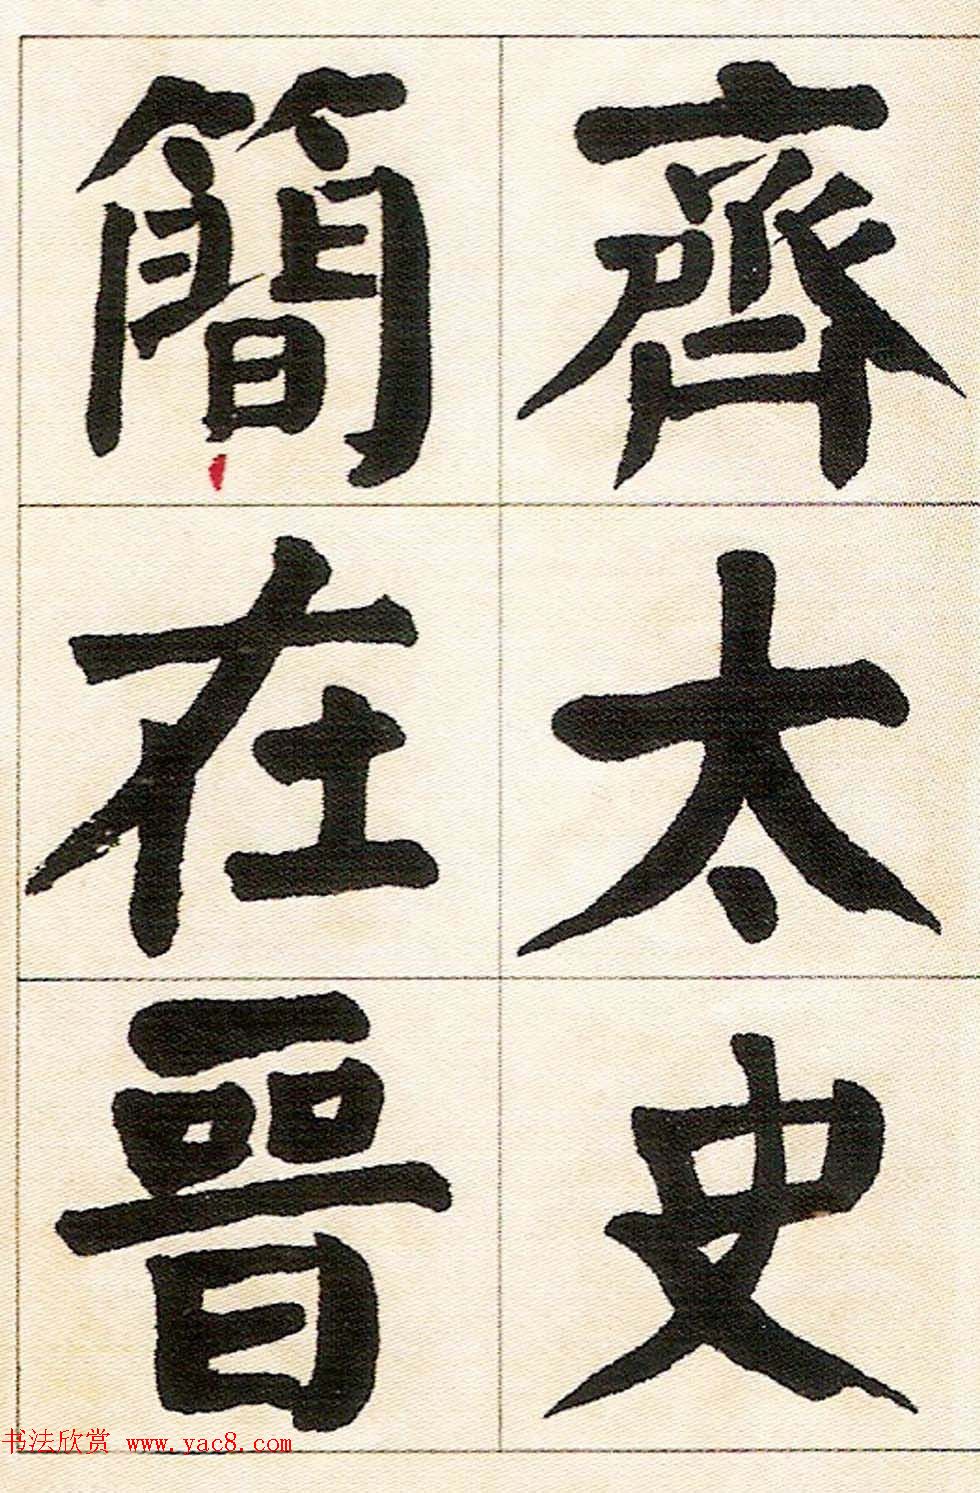 齊太史
簡在晉
书法欣赏 www.yac8.com